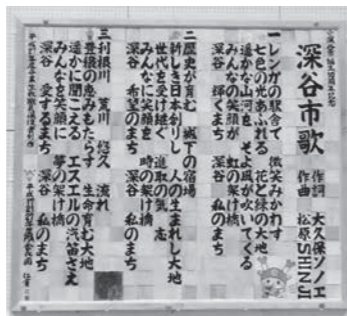 深谷市歌
作詞 大久保ソノエ
作曲 松原SHINJI
一 レンガの駅舎で 微笑みかわす
七色の光あふれる 花と緑の大地
遥かな山河を そよ風が吹いてくる
みんなの笑顔が 虹の架け橋
深谷 輝くまち 深谷 私のまち
二 歴史が育む 城下の宿場
新しき日本創りし 人の生まれし大地
世代を受け継ぐ 進取の気 志
みんなに笑顔を 時の架け橋
深谷 希望のまち 深谷 私のまち
三 利根川 荒川 悠久 流れ
豊穣の恵みもたらす 生命育む大地
遥かに聞こえる エスエルの汽笛さえ
みんなを笑顔に 夢の架け橋
深谷 愛するまち 深谷 私のまち